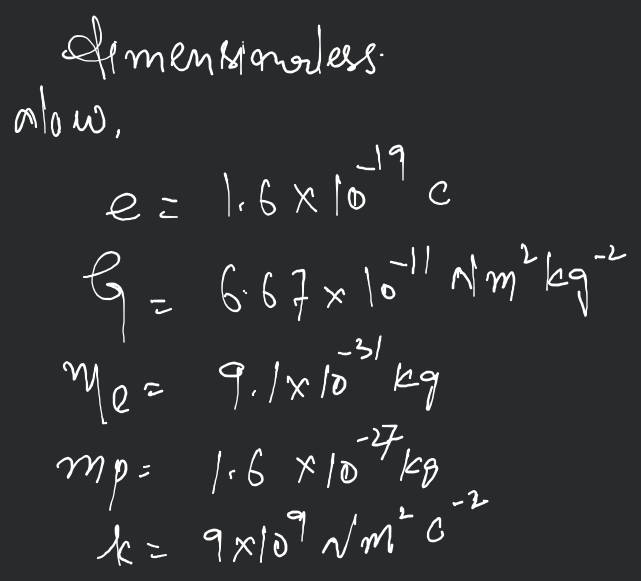 dimensionless.
Now,
e = 1.6 × 10⁻¹⁹ C
G = 6.67 × 10⁻¹¹ Nm² kg⁻²
me = 9.1 × 10⁻³¹ kg
mp = 1.6 × 10⁻²⁷ kg
k = 9 × 10⁹ Nm² C⁻²